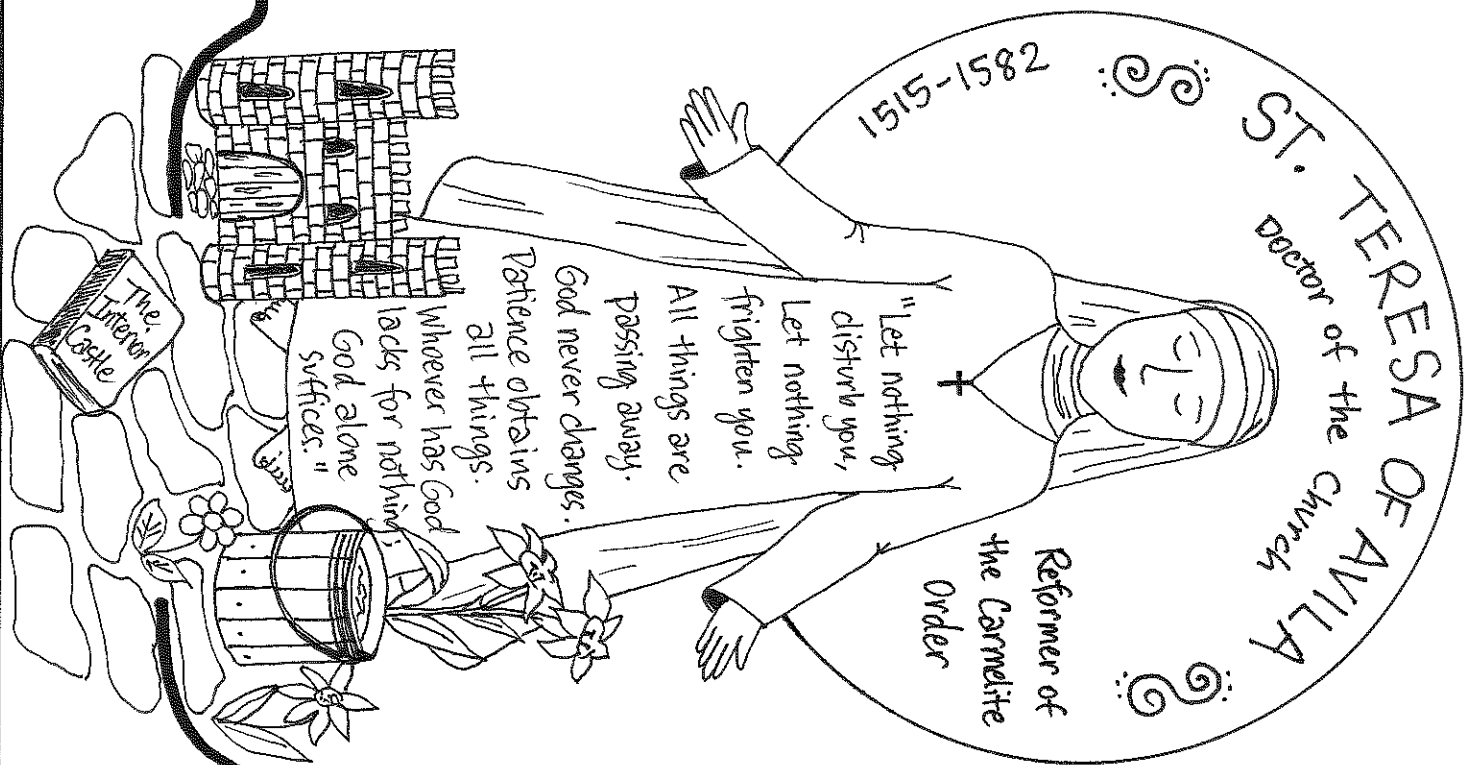 ST. TERESA OF AVILA
Doctor of the Church
1515-1582
Reformer of
the Carmelite
Order
"Let nothing
disturb you,
Let nothing
frighten you.
All things are
passing away.
God never changes.
Patience obtains
all things.
Whoever has God
lacks for nothing;
God alone
suffices."
The
Interior
Castle